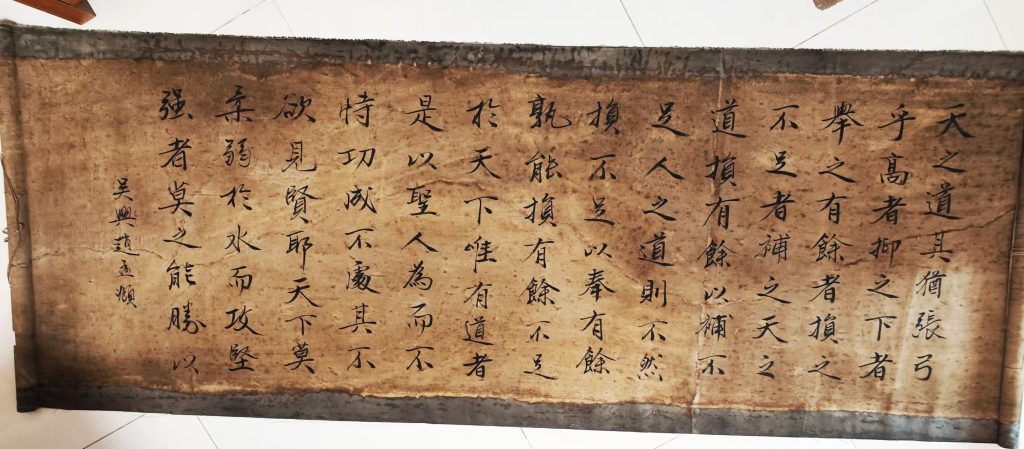 天之道其猶張弓
乎高者抑之下者
舉之有餘者損之
不足者補之天之
道損有餘以補不
足人之道則不然
損不足以奉有餘
孰能損有餘不足
於天下唯有道者
是以聖人為而不
恃功成不處其不
欲見賢耶天下莫
柔弱於水而攻堅
強者莫之能勝以
吳興趙孟頫